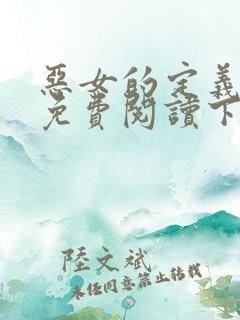 惡女的定義
免費閱讀下
陸文斌
未經同意禁止轉載